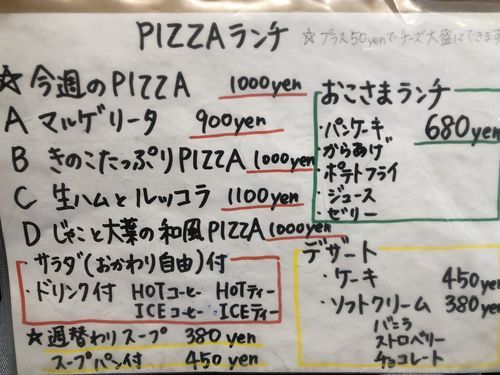 PIZZAランチ ☆プラス50yenでチーズ大盛にできます
☆今週のPIZZA 1000yen
A マルゲリータ 900yen
B きのこたっぷりPIZZA 1000yen
C 生ハムとルッコラ 1100yen
D じゃこと大葉の和風PIZZA 1000yen
・サラダ(おかわり自由)付
・ドリンク付 HOTコーヒー HOTティー
ICEコーヒー ICEティー
☆週替わりスープ 380yen
スープパン付 450yen
おこさまランチ
・パンケーキ 680yen
・からあげ
・ポテトフライ
・ジュース
・ゼリー
デザート
・ケーキ 450yen
・ソフトクリーム 380yen
バニラ
ストロベリー
チョコレート